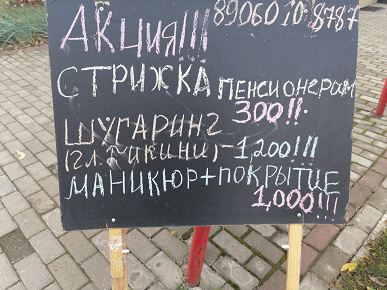 89060108787
АКЦИЯ!!!
СТРИЖКА ПЕНСИОНЕРАМ
300!!
ШУГАРИНГ
(гл.бикини)-1,200!!!
МАНИКЮР+ПОКРЫТИЕ
1,000!!!